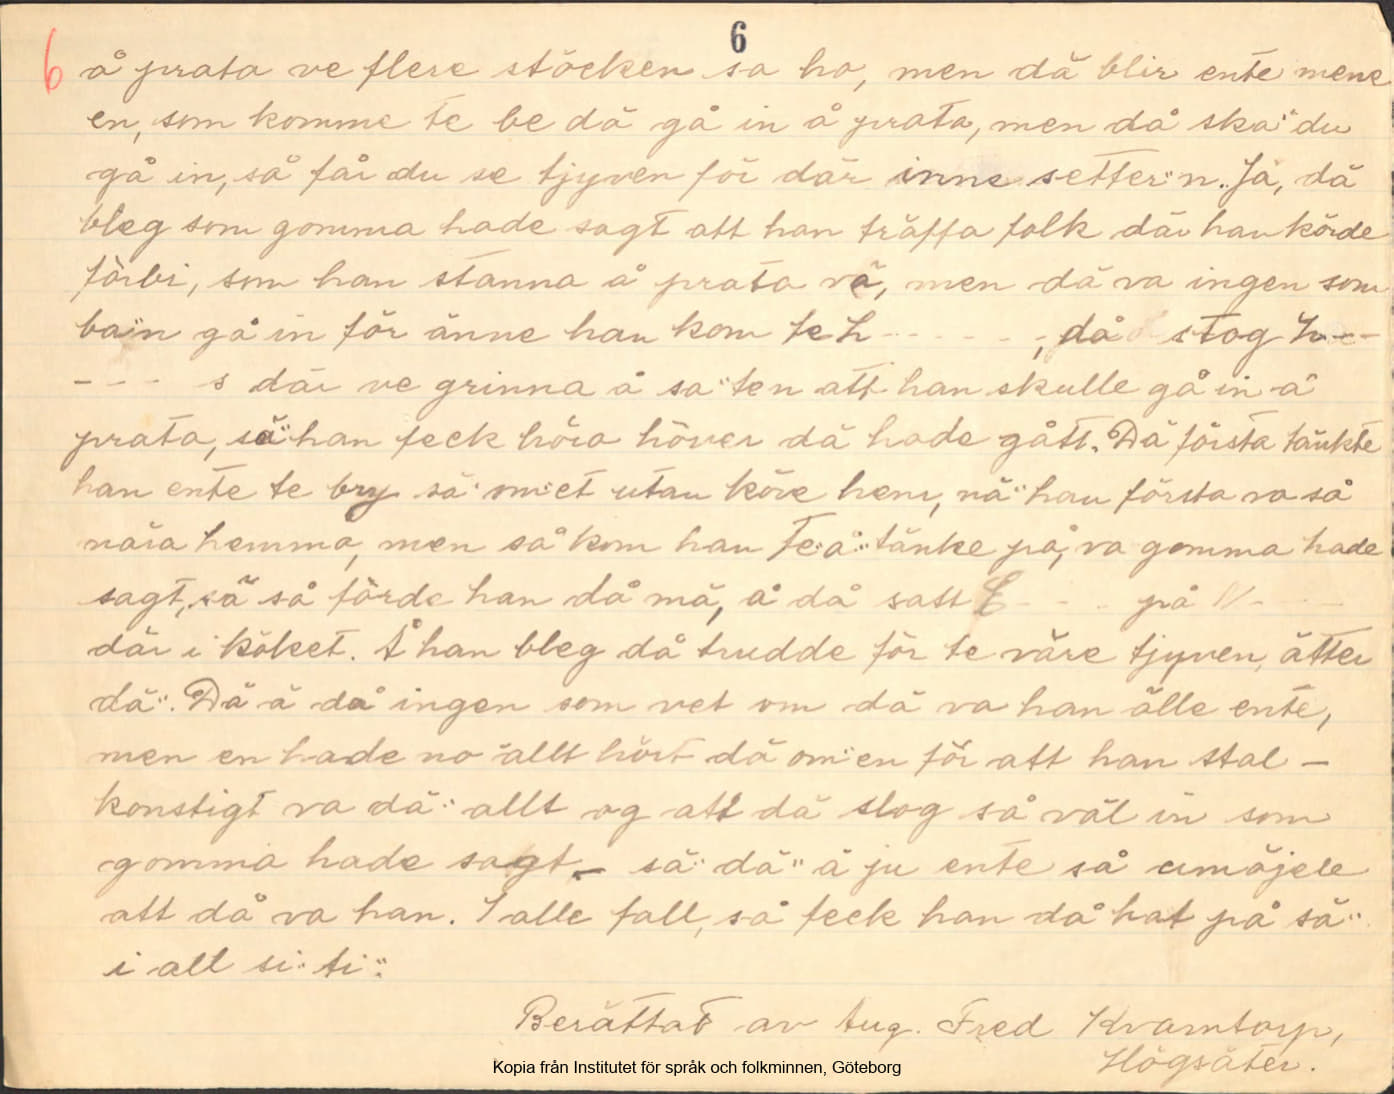 6
6 å prata ve flere stöcken sa ho, men dä blir ente mene
en, som komme te be dä gå in å prata, men då ska" du
gå in, så får du se tjyven för där inne setter"n. Ja, dä
bleg som gomma hade sagt att han träffa folk där han körde
förbi, som han stanna å prata vä, men dä va ingen som
ba"n gå in för änne han kom te L - - - - -, då stog L - -
- - - s där ve grinna å sa"ten att han skulle gå in å
prata, sä" han feck höra höver dä hade gått. Dä första tänkte
han ente te bry sä" om"et utan köre hem, nä" han första va så
nära hemma, men så kom han te"å" tänke på, va gomma hade
sagt, sä så förde han då mä, å då satt E - - - på - - -
där i köket. Å han bleg då trudde för te väre tjyven ätter
dä". Dä ä då ingen som vet om dä va han älle ente,
men en hade no allt hört dä om"en för att han stal –
konstigt va dä" allt og att dä slog så väl in som
gomma hade sagt – sä" dä" ä ju ente så umöjele
att då va han. I alle fall, så feck han då hat på sä"
i all si" ti".
Berättat av Aug. Fred Kvarntorp,
Högsäter.
Kopia från Institutet för språk och folkminnen, Göteborg